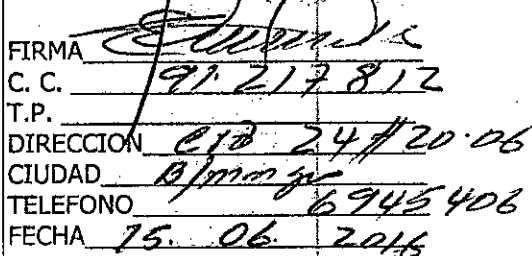 FIRMA
C. C. 91.217.812
T.P.
DIRECCION 24#20-06
CIUDAD B/manga
TELEFONO 6945406
FECHA 15. 06. 2016